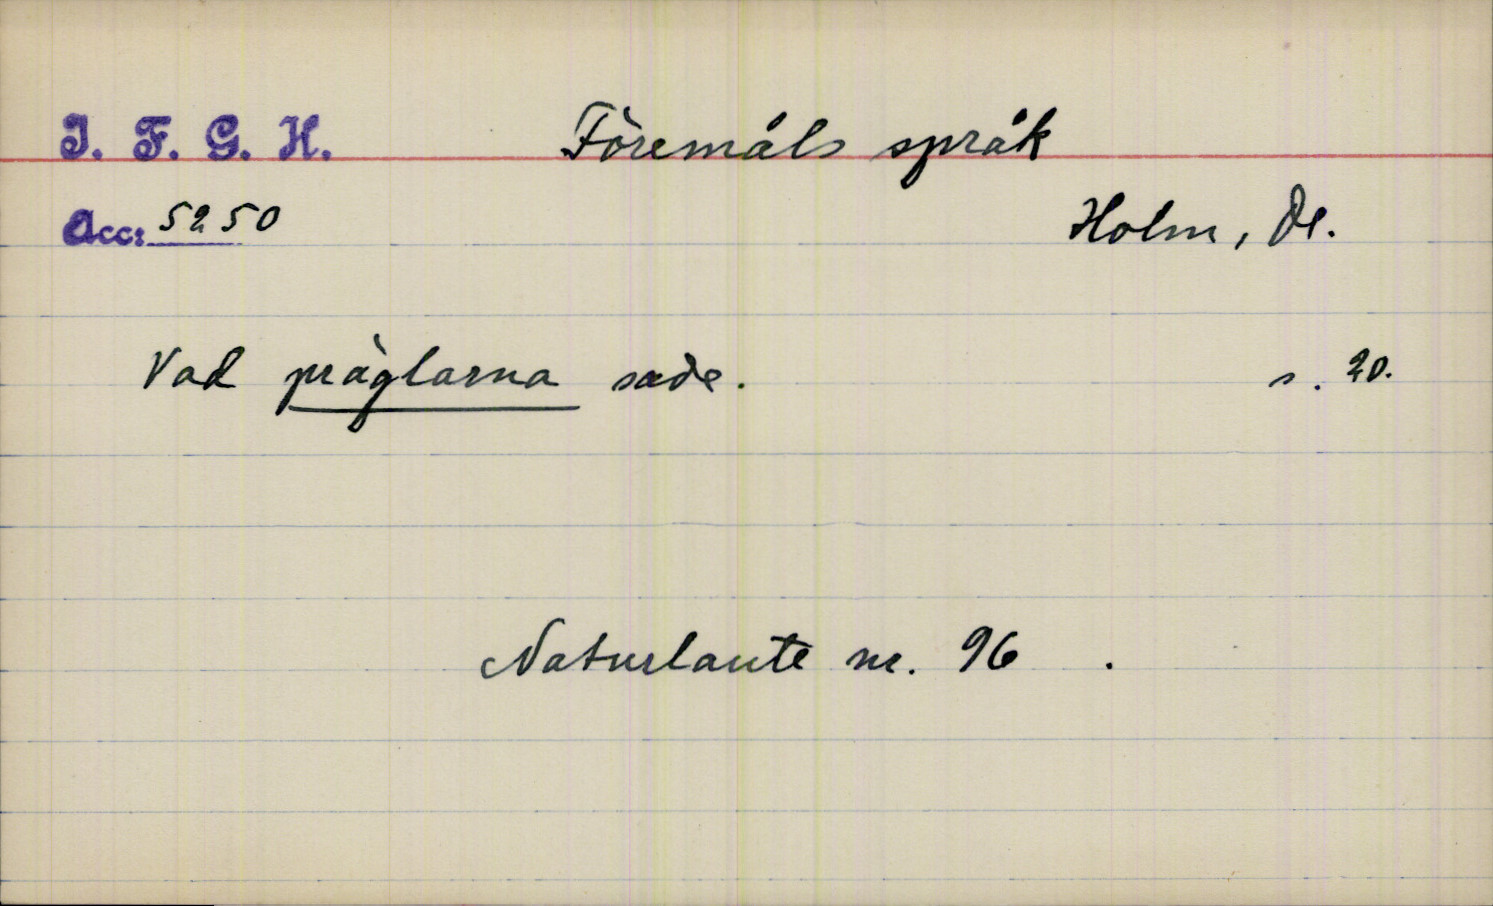 I. F. G. H. Föremåls språk
Acc: 5250 Holm, Dl.
Vad präglarna sade. s. 20.
Naturlaute nr. 96 .